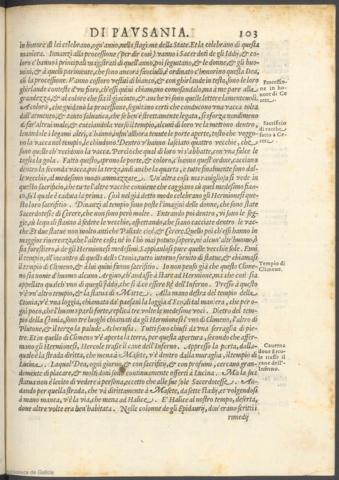 DI PAVSANIA. 103
in honore di lei celebrano, ogn'anno, nella stagione della State. Et la celebrano di questa
maniera. Innanzi alla processione (per dir così) vanno i Sacerdoti de gli Iddij, & colo-
ro c'hanno i principali magistrati di quell'anno, poi seguitano, & le donne, & gli huo-
mini, & à quelli parimente, che sono ancora fanciulli, è ordinato c'honorino questa Dea,
di la processione. Vanno costoro vestiti di bianco, & con ghirlande in testa, sono le loro
ghirlande conteste d'un fiore, ch'essi quini chiamano
grandezza, & al colore che sia il giacinto, & anche v'è sono quelle lettere lamentevoli.
à coloro, che guidano la processione, seguitano certi che conducono una vacca tolta
dall'armento, & tanto salvatica, che se ben è strettamente legata, si sforza nondimeno
di far'altrui male, & cacciandola verso il tempio, alcuni di loro ve la mettono dentro,
lentandole i legami altri, c'hanno, infin'allhora tenute le porte aperte, tosto che veggo-
no la vacca nel tempio, le chiudono. Dentro v'hanno lasciato quattro vecchie, che
son quelle ch'uccidono la vacca. Percioche qual di loro vi s'abbatte, con una falce le
taglia la gola. Fatto questo, aprono le porte, & coloro, c'hanno quest'ordine, cacciano
dentro la seconda vacca, poi la terza, & indi anche la quarta, e tutte finalmente son dal-
le vecchie, al medesimo modo ammazzate. Un'altra cosa maravigliosa si vede in
questo sacrificio, che tutte l'altre vacche conviene che caggiano di quel medesimo fian-
co, su'l quale è caduta la prima. Così nel già detto modo celebrano gli Hermionesi que-
sto loro sacrificio. Dinanzi al tempio sono poste l'imagini delle donne, che sono state
Sacerdotesse di Cerere, che non sono però molte. Entrando poi dentro, vi sono le seg-
gie, ch'le quali stanno à sedere le vecchie, aspettando, che siano cacciate dentro le vac-
che. Et due statue non molto antiche Pallade cioè, & Cerere. Quello poi ch'essi hanno in
maggior riverenza, che l'altre cose; nè io l'hò mai potuto sapere, nè alcun'altr'huomo, ò
sia forestiero, ò de gli Hermionesi medesimi. Sappianlo pure quelle vecchie sole. Evvi
il tempio, all'incontro di quello della Ctonia, tutto intorno fornito di statue, & chiamasi
il tempio di Climeno, & à lui quivi fanno sacrificio. Io non penso già che questo Clime-
no sia nome d'huomo alcuno Argivo, ch'andasse ad Hermione, ma che così sia
appellato qualch'uno di questi Iddij, che si dica essere Rè dell'Inferno. Presso à questo
v'è un'altro tempio, & la statua di Marte. Alla mano destra del tempio della
Ctonia, v'è una loggia, chiamata da' paesani la loggia d'Eco, di tal maniera, che per o-
gni poco, che l'huomo parli forte, replica tre volte le medesime voci. Dietro del tem-
pio della Ctonia, sono tre luoghi chiamati da gli Hermionesi l'un di Climeno, l'altro di
Plutone, & il terzo la palude Acherusia. Tutti sono chiusi da una serraglia di pie-
tre. Et in quello di Climeno v'è aperta la terra, per questa apertura, secondo che affer-
mano gli Hermionesi, Hercole trasse il cane dell'Inferno. Appresso la porta, dalla
quale è la strada dritta, che mena à Masete, v'è dentro dalla muraglia, il tempio di
Lucina. Laqual Dea, ogni giorno & con sacrificio, & con profumi, cercano gran-
demente di placare, & molti doni sono continuamente offerti à Lucina. Ma la sua
statua non è lecito di vedere à persona, eccetto che alle sue sole Sacerdotesse. An-
dando per quella strada, che va dirittamente à Masete, da sette stadij, et volgendosi
à mano manca, v'è la via, che mena ad Halice. E' Halice al nostro tempo, deserta,
donde altre volte era ben'habitata. Nelle colonne de gli Epidaurij, dov'erano scritti i
rimedij
Processio-
ne in ho-
nore di Ce-
rere.
Sacrificio
di vacche
fatto à Ce-
rere.
Tempio di
Climeno.
Caverna
donde Erco-
le trasse il
cane dell'-
Inferno.
Biblioteca de Galicia